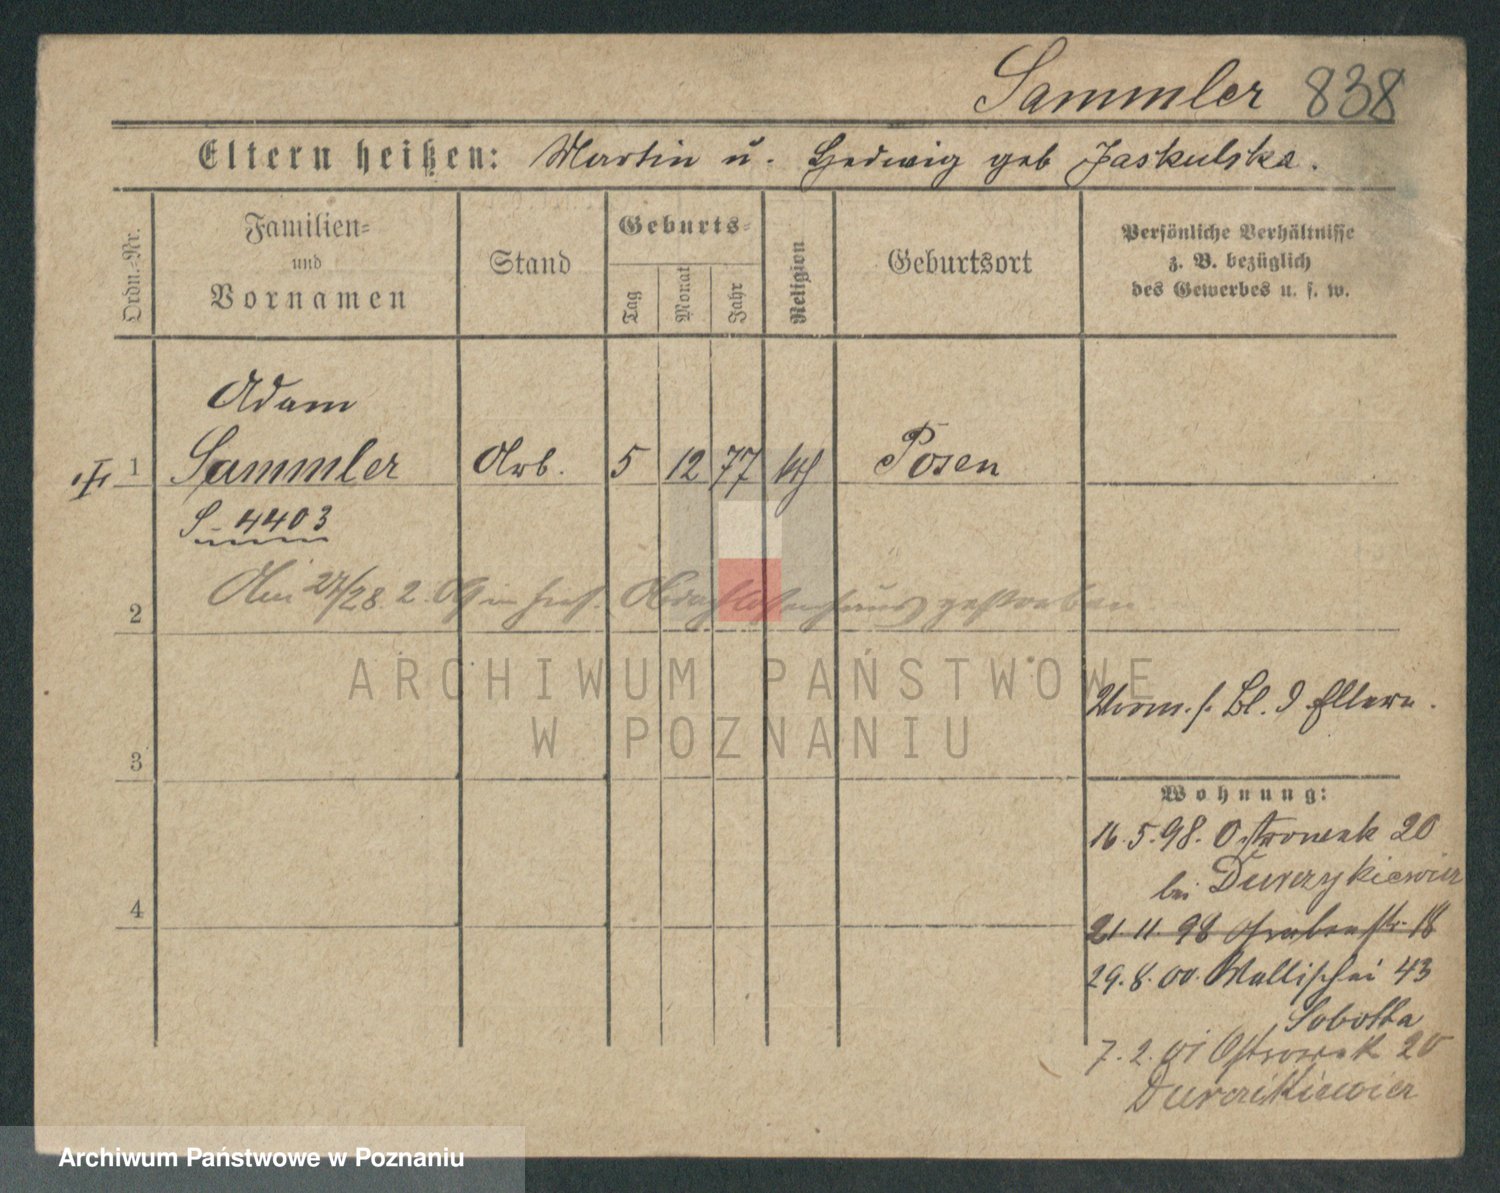 Sammler 838
Eltern heißen: Martin u. Hedwig geb Jaskulska.
Ordn.-Nr.
Familien- und Vornamen
Stand
Geburts-
Tag
Monat
Jahr
Religion
Geburtsort
Persönliche Verhältnisse
z. B. bezüglich
des Gewerbes u. s. w.
Adam
1 Sammler Arb. 5 12 77 kth Posen
S-4403
2 Am 27/28. 2. 09 in gestorben
ARCHIWUM PAŃSTWOWE
W POZNANIU
Verm. s. Bl. d Eltern.
3
Wohnung:
16.5.98. Ostrowek 20
bei Duczykiewicz
4
21.11.98 Grabenstr. 18
29.8.00. Wallischei 43
Sobotta
7.2.01 Ostrowek 20
Archiwum Państwowe w Poznaniu